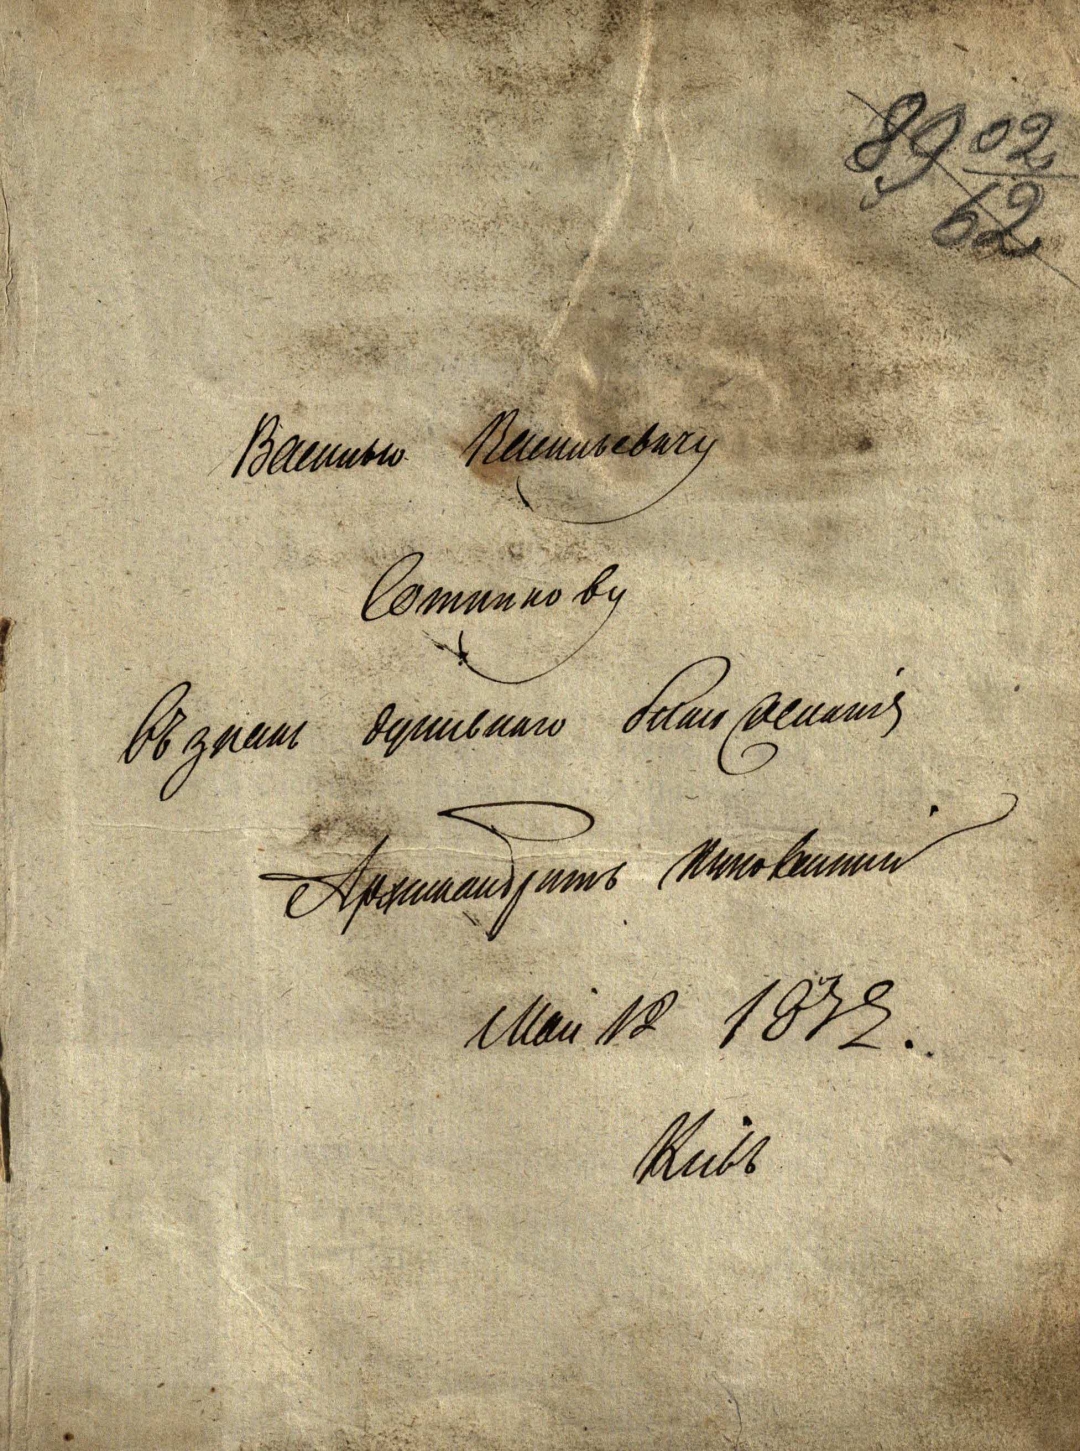 89 02
62
Василью Васильевичу
Сотникову
Въ знакъ душевнаго благожеланія
Архимандритъ Иннокентій
Май 18 1872.
Кіевъ